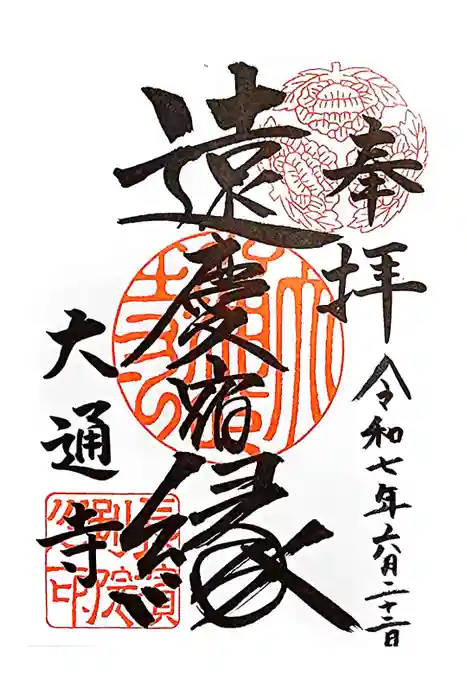 奉拝
令和七年六月二十二日
遠慶宿縁
大通寺
長濱
別院